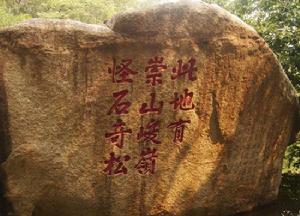 此地有
崇山峻嶺
怪石奇松